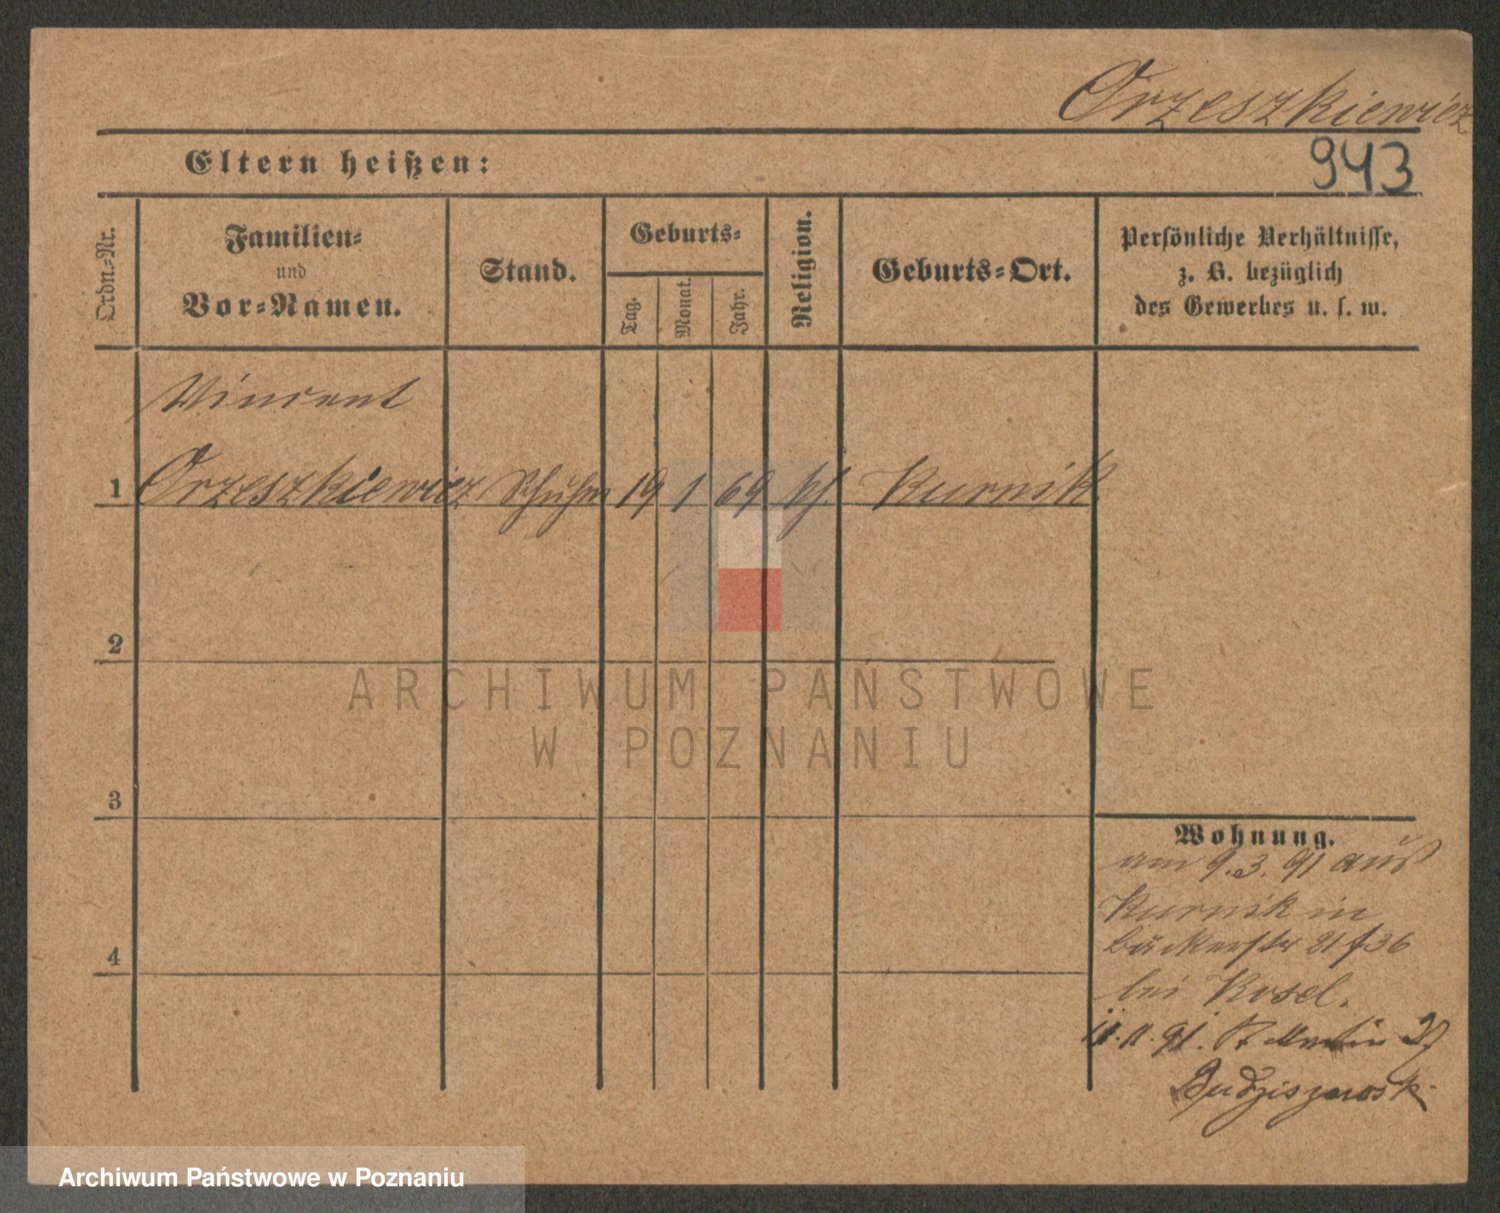 Orzeszkiewicz
943
Eltern heißen:
Ordn.-Nr.
Familien-
und
Vor-Namen.
Stand.
Geburts-
Tag.
Monat.
Jahr.
Religion.
Geburts-Ort.
Persönliche Verhältnisse,
z. B. bezüglich
des Gewerbes u. s. w.
Vincent
1 Orzeszkiewicz Schuhm 19 1 69 kh. Kurnik
2
3
4
Wohnung.
am 9.3.91 aus
Kurnik in
Bäckerstr 21 f 36
bei Kosel.
11.11.91. St Martin 27
Budziszewski
ARCHIWUM PAŃSTWOWE
W POZNANIU
Archiwum Państwowe w Poznaniu